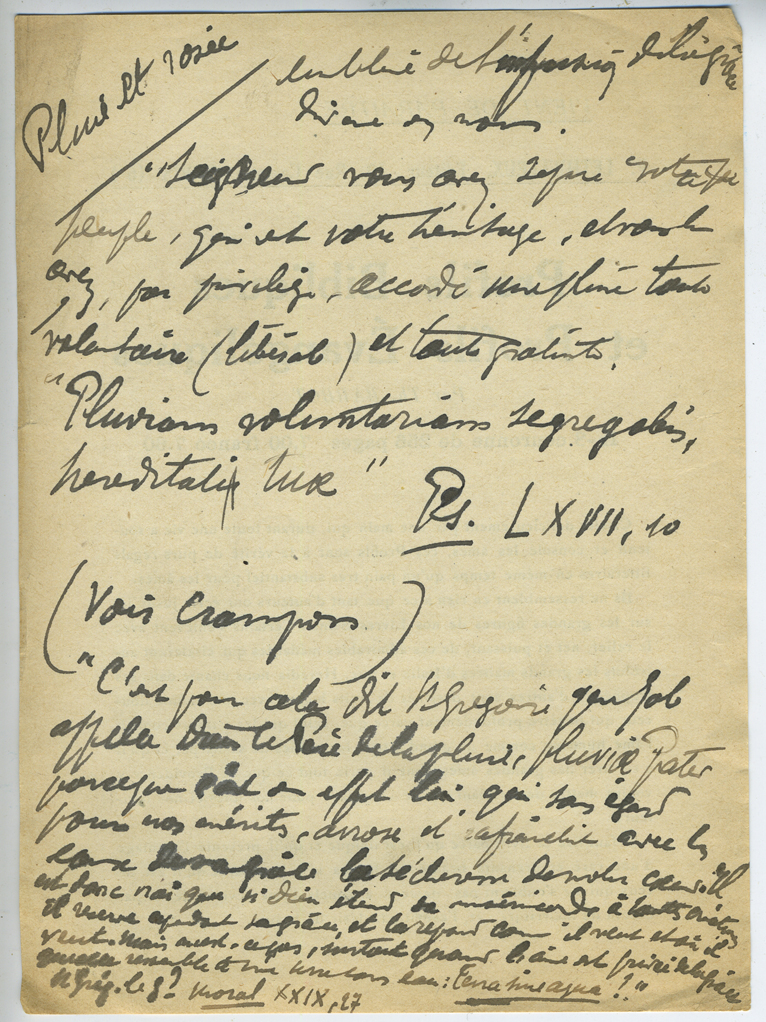 Pluie et rosée
emblème de l'infusion de la grâce
divine en nous.
"Seigneur vous avez séparé votre
peuple, qui est votre héritage, et vous lui
avez, par privilège, accordé une pluie toute
volontaire (libérale) et toute gratuite.
"Pluviam voluntariam segregabis,
hereditati tuæ"
Ps. LXVII, 10
(Voir Crampon)
"C'est pour cela dit St Grégoire que Job
appelle Dieu le Père de la pluie, pluviæ Pater
parceque c'est en effet lui, qui sans égard
pour nos mérites, arrose et rafraîchit avec les
eaux de sa grâce la sécheresse de notre cœur. Il
est donc vrai que si Dieu étend sa miséricorde à toutes créatures
il réserve cependant sa grâce, et la répand comme il veut et où il
veut. Mais n'est-ce pas, surtout quand l'âme est privée de la grâce
qu'elle ressemble à une terre sans eau: Terra sine aqua!"
St Grég. le gd. Moral XXIX, 27